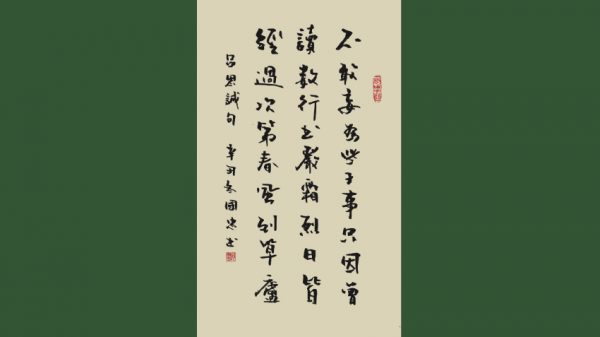 不敢妄為些子事只因曾
讀数行書嚴霜烈日皆
經過次第春風到草廬
呂思誠句 辛丑秦國忠書